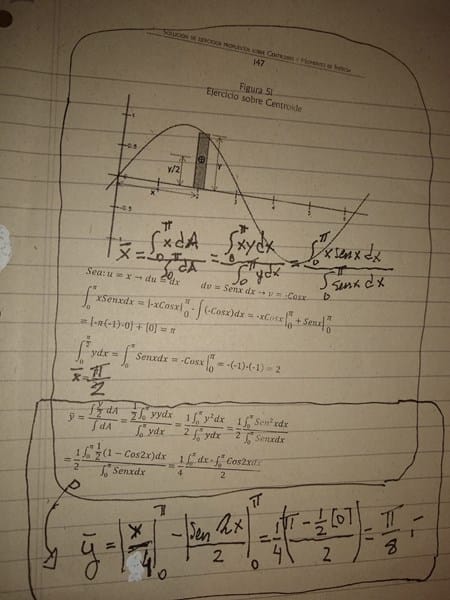 SOLUCIÓN DE EJERCICIOS PROPUESTOS SOBRE CENTROIDES Y MOMENTOS DE INERCIA
147
Figura 51
Ejercicio sobre Centroide
1
0.5
y/2 y
x 2 3 4 5 6
-0.5
-1
x̄ = ∫₀^π x dA / ∫₀^π dA = ∫₀^π xy dx / ∫₀^π y dx = ∫₀^π x Sen x dx / ∫₀^π Sen x dx
Sea: u = x → du = dx dv = Senx dx → v = -Cosx
∫₀^π xSenxdx = |-xCosx|₀^π - ∫(-Cosx)dx = -xCosx|₀^π + Senx|₀^π
= [-π(-1)-0] + [0] = π
∫₀^(π/2) ydx = ∫₀^π Senxdx = -Cosx|₀^π = -(-1)-(-1) = 2
x̄ = π/2
ȳ = ∫ y/2 dA / ∫ dA = 1/2 ∫₀^π yydx / ∫₀^π ydx = 1/2 ∫₀^π y²dx / ∫₀^π ydx = 1/2 ∫₀^π Sen²xdx / ∫₀^π Senxdx
= 1/2 ∫₀^π 1/2 (1 - Cos2x)dx / ∫₀^π Senxdx = 1/4 ∫₀^π dx - ∫₀^π Cos2xdx / 2
ȳ = |x/4|₀^π - |Sen 2x / 2|₀^π = 1/4 (π - 1/2 [0] / 2) = π/8